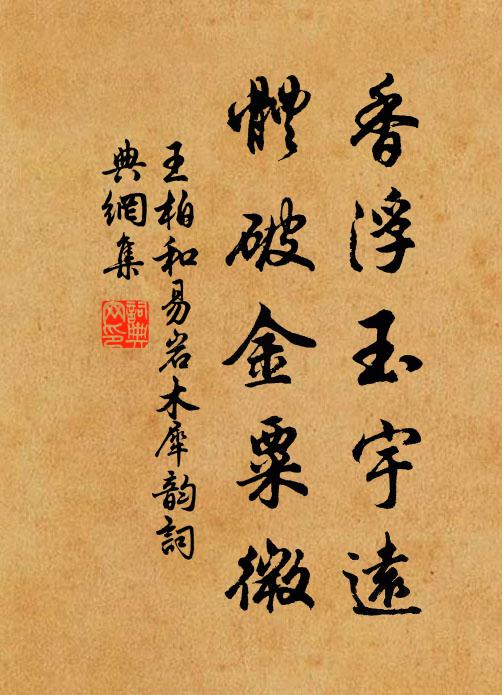 香浮玉宇遠
體破金粟微
王柏和易岩木犀韵詞
典網集
詞典網印